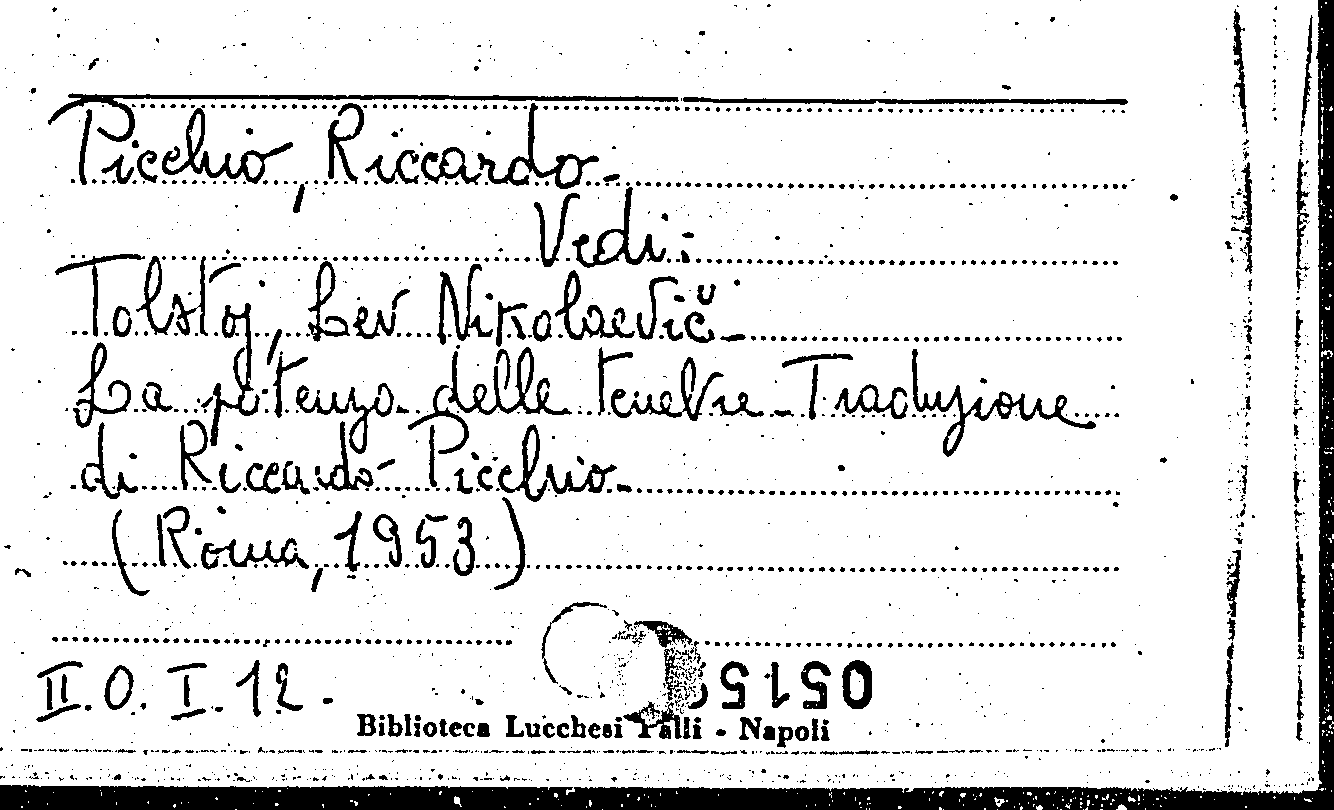 Picchio, Riccardo.
Vedi:
Tolstoj, Lev Nikolaevič.
La potenza delle tenebre. Traduzione
di Riccardo Picchio.
(Roma, 1953)
II.O.I.12.
Biblioteca Lucchesi Palli - Napoli